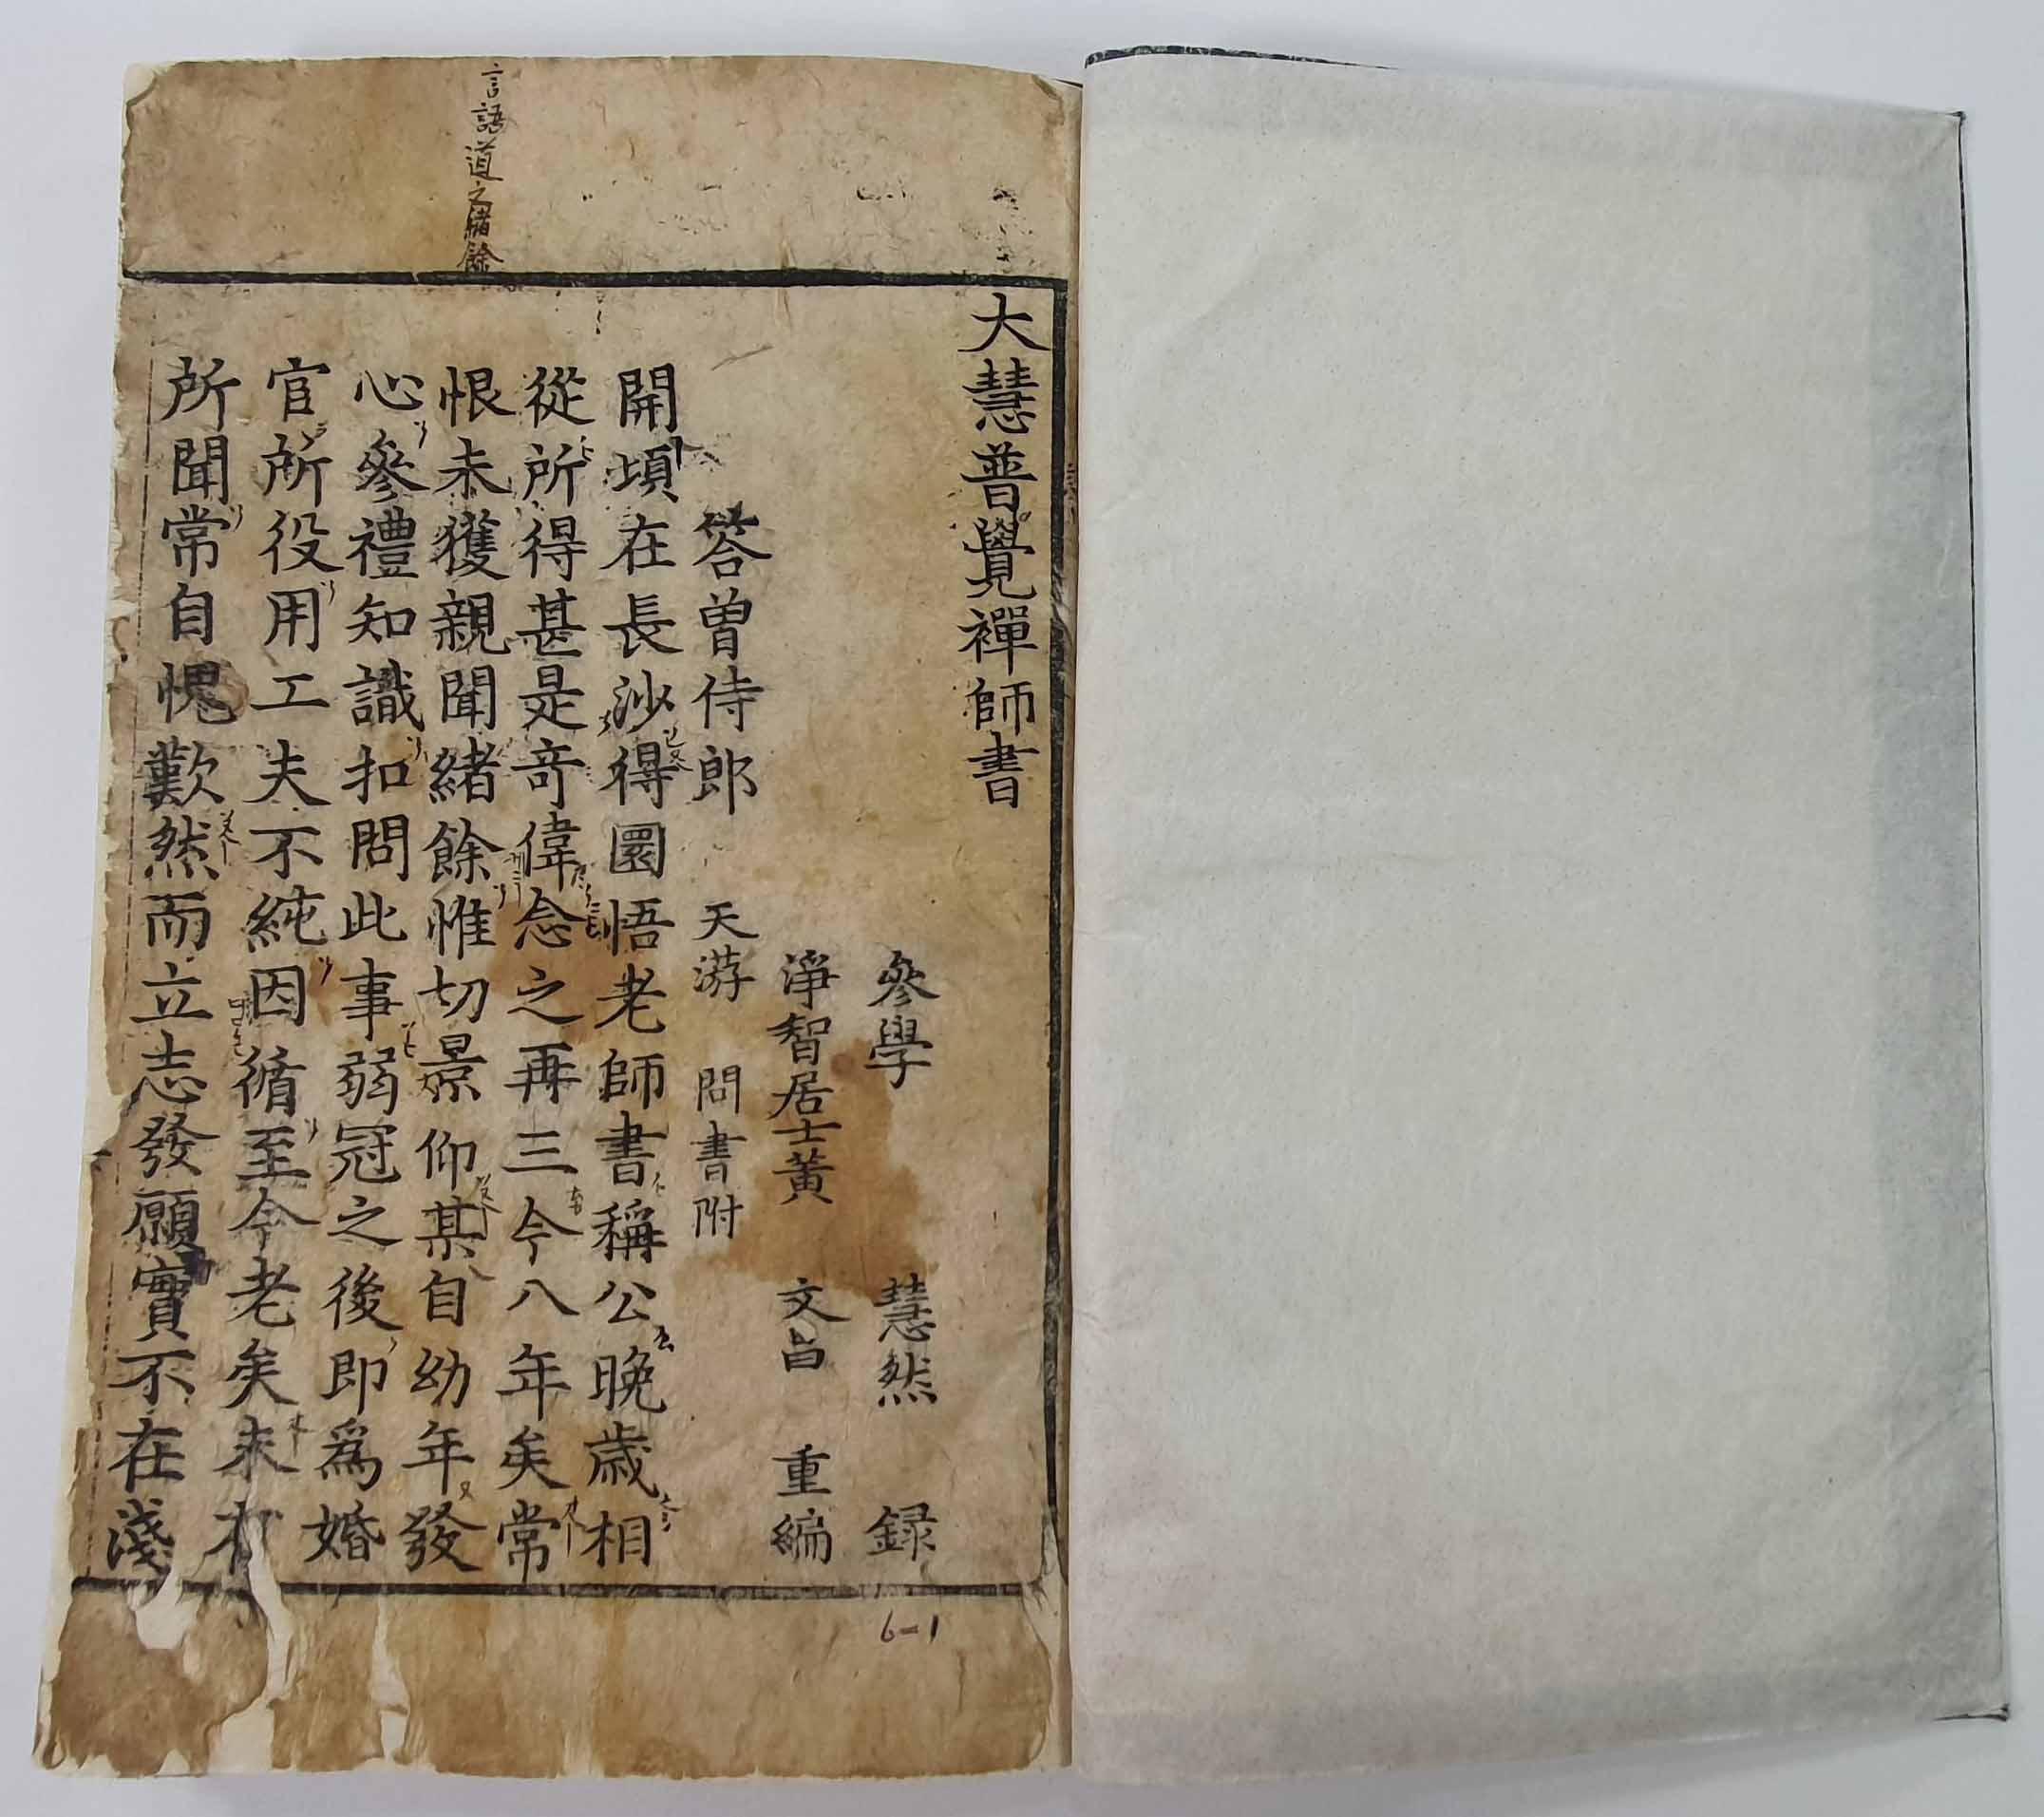 言語道之緒餘
大慧普覺禪師書
參學 慧然 録
淨智居士黃 文昌 重編
答曾侍郎 天游 問書附
開頃在長沙得圜悟老師書稱公晚歲相
從所得甚是竒偉念之再三今八年矣常
恨未獲親聞緒餘惟切景仰某自幼年發
心參禮知識扣問此事弱冠之後即爲婚
官所役用工夫不純因循至今老矣未有
所聞常自愧歎然而立志發願實不在淺
6-1